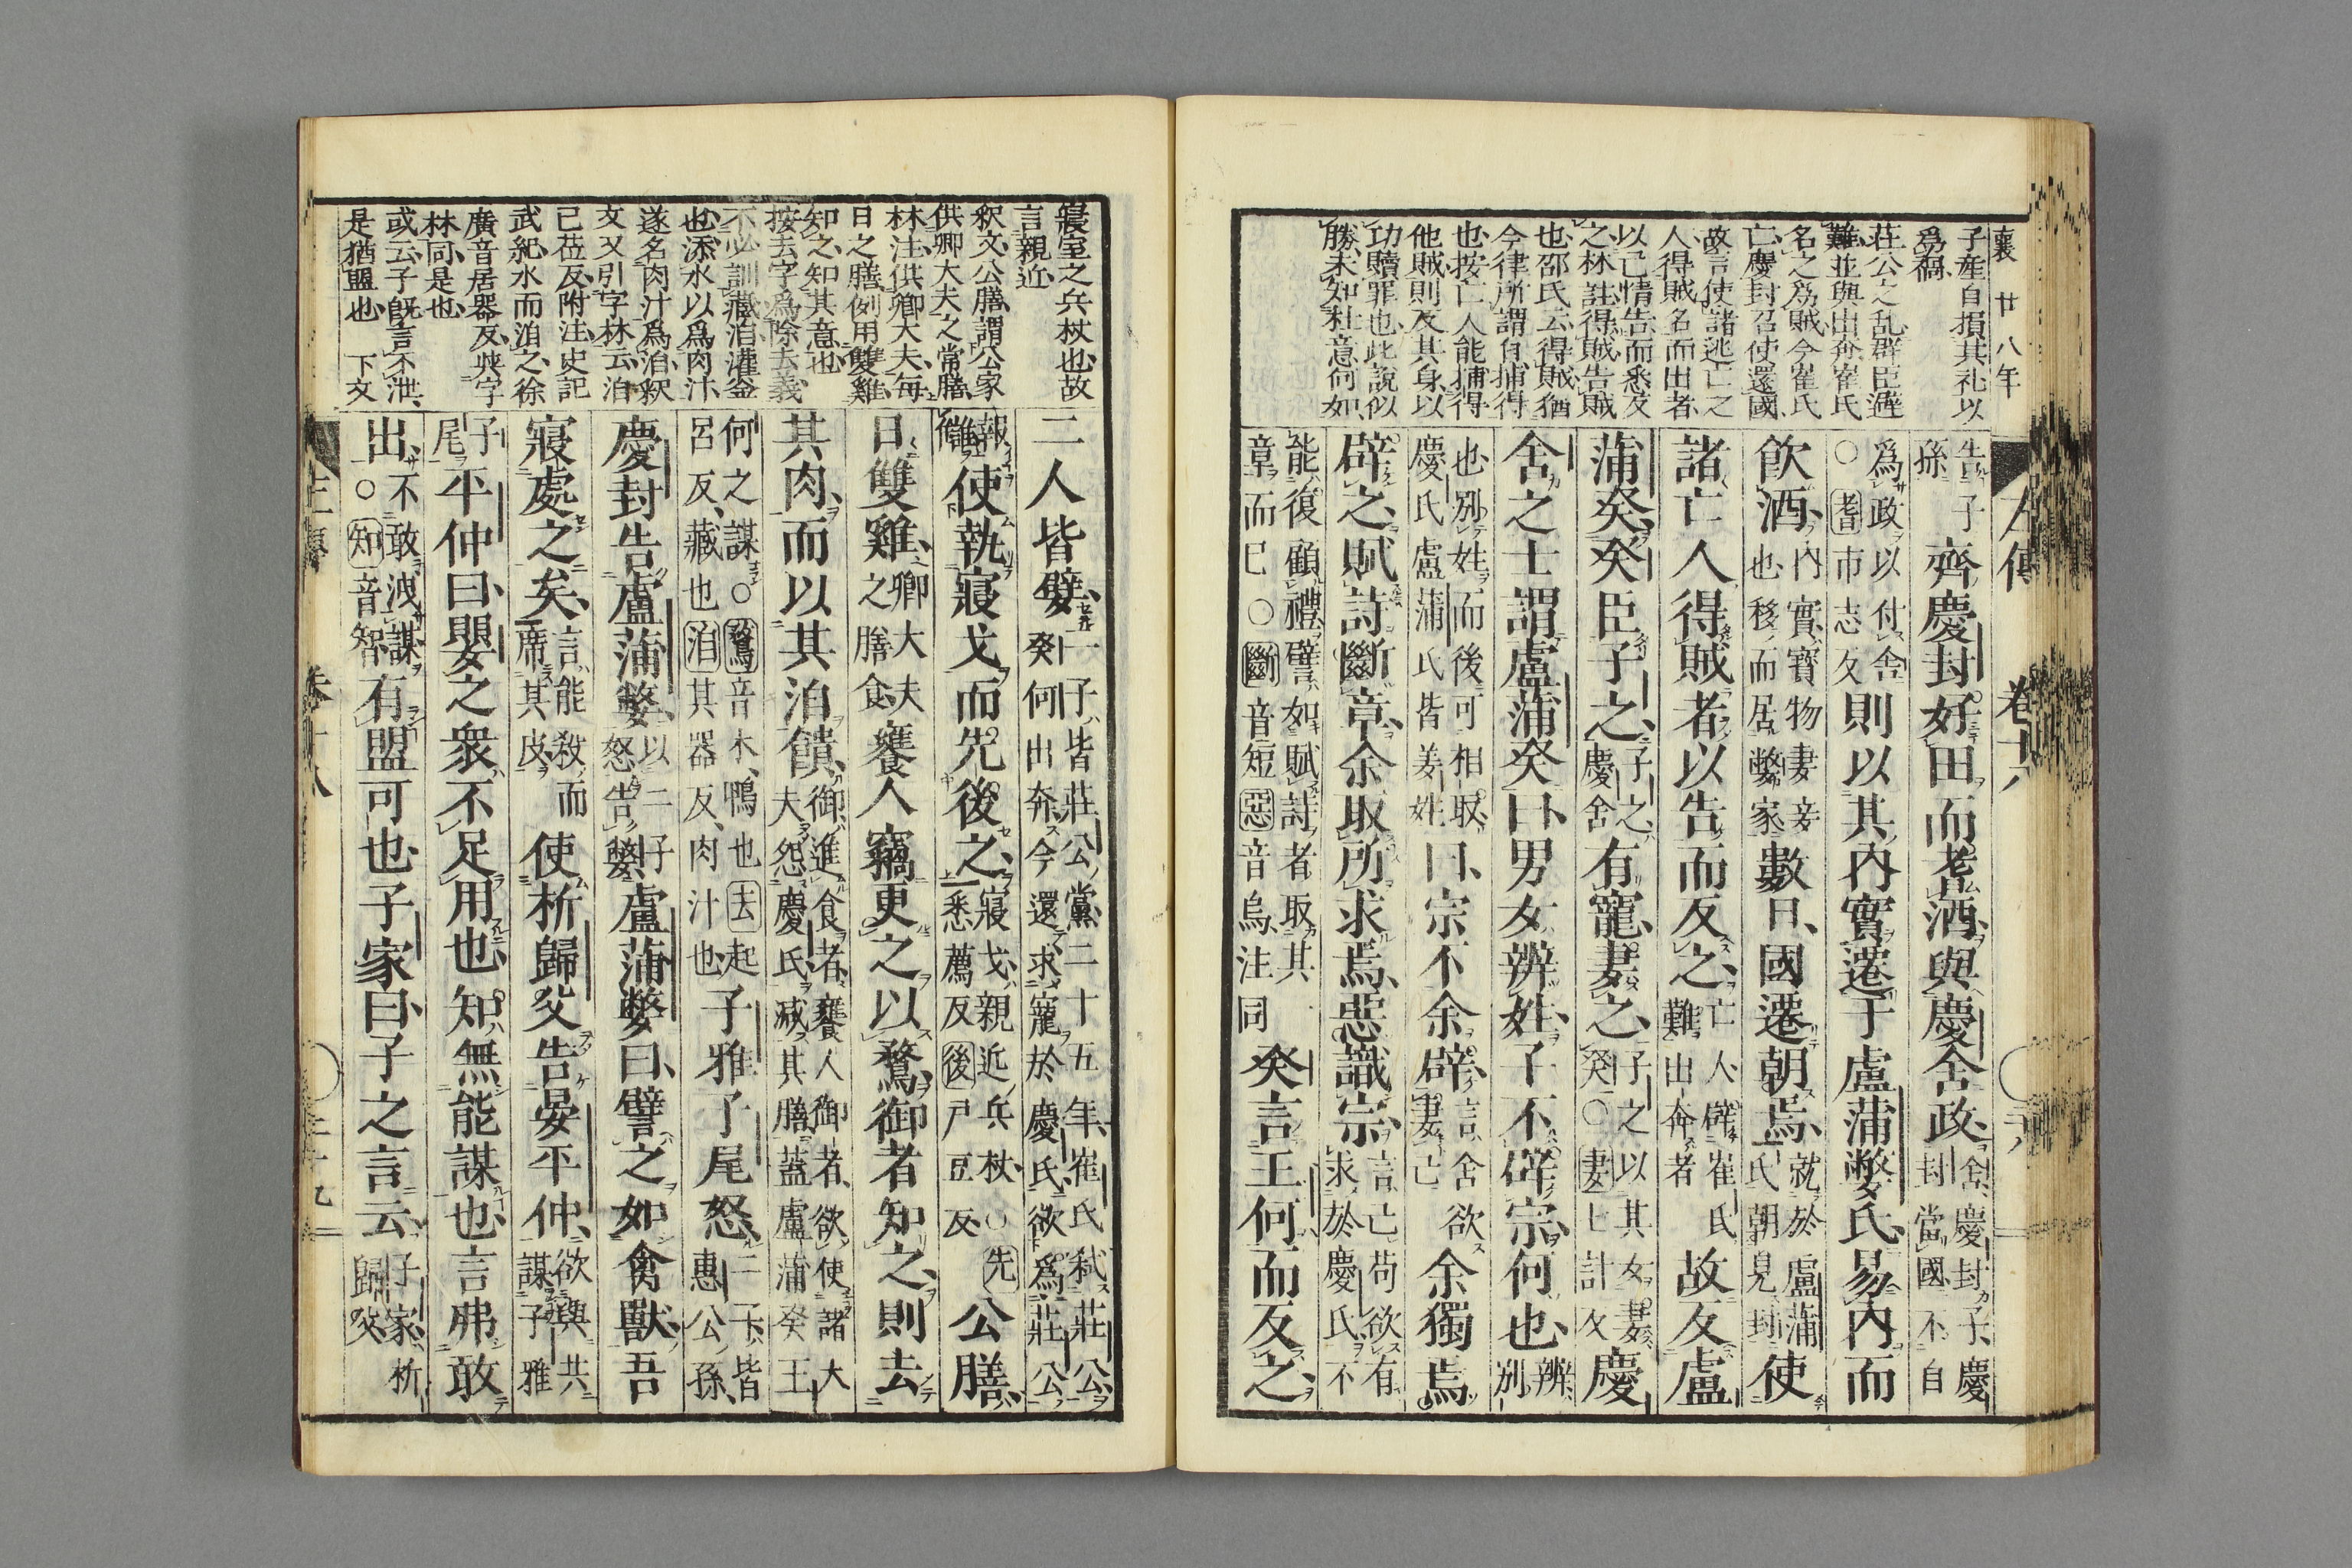 襄 廿八年
子産自損其礼以
爲禍
莊公之乱群臣遲
難並與出奔崔氏
名之爲賊今崔氏
亡慶封召使還國
故言使諸逃亡之
人得賊名而出者
以己情告而悉反
之林註得賊告賊
也邵氏云得賊猶
今律所謂自捕得
也按亡人能捕得
他賊則反其身以
功贖罪也此說似
勝未知杜意何如
左傳 卷十八
告子孫 齊慶封好田而耆酒與慶舍政舍慶封子慶封當國不自
爲政以付舍○耆市志反則以其內實遷于盧蒲嫳氏易內而
飲酒內實寶物妻妾也移而居嫳家數日國遷朝焉就於盧蒲氏朝見封使
諸亡人得賊者以告而反之亡人辟崔氏難出奔者故反盧
蒲癸癸臣子之子之慶舍有寵妻之子之以其女妻癸○妻七計反慶
舍之士謂盧蒲癸曰男女辨姓子不辟宗何也辨別
也別姓而後可相取慶氏盧蒲氏皆姜姓曰宗不余辟言舍欲妻己余獨焉
辟之賦詩斷章余取所求焉惡識宗言亡苟欲有求於慶氏不
能復顧禮譬如賦詩者取其章而已○斷音短惡音烏注同癸言王何而反之
寢室之兵杖也故
言親近
釈文公膳謂公家
供卿大夫之常膳
林注供卿大夫每
日之膳例用雙雞
知之知其意也
按去字爲除去義
不必訓藏洎灌釜
也添水以爲肉汁
遂名肉汁爲洎釈
文又引字林云洎
已莅反附注史記
武紀水而洎之徐
廣音居器反與字
林同是也
或云子既言不泄
是猶盟也 下文
二人皆嬖二子皆莊公黨二十五年崔氏弑莊公癸何出奔今還求寵於慶氏欲爲莊公
報讎使執寢戈而先後之寢戈親近兵杖○先悉薦反後戸豆反公膳
日雙雞卿大夫之膳食饔人竊更之以鶩御者知之則去
其肉而以其洎饋御進食者饔人御者欲使諸大夫怨慶氏減其膳蓋盧蒲癸王
何之謀○鶩音木鴨也去起呂反藏也洎其器反肉汁也子雅子尾怒二子皆惠公孫
慶封告盧蒲嫳以二子怒告嫳盧蒲嫳曰譬之如禽獸吾
寢處之矣言能殺而席其皮使析歸父告晏平仲欲與共謀子雅
子尾平仲曰嬰之衆不足用也知無能謀也言弗敢
出不敢洩謀○知音智有盟可也子家曰子之言云子家析歸父